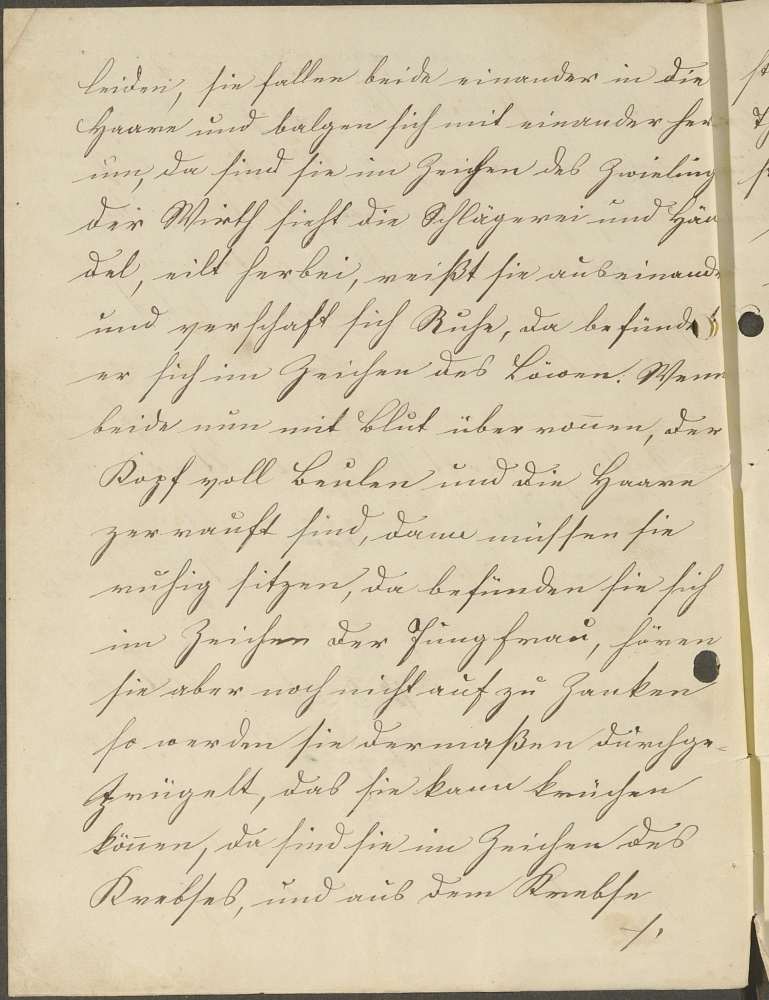 leiden, sie fallen beide einander in die
Haare und balgen sich mit einander her
um, da sind sie im Zeichen des Zwieling
der Wirth sieht die Schlägerei und Hän
del, eilt herbei, reißt sie auseinande
und verschaft sich Ruhe, da befünde
er sich im Zeichen des Löwen. Wenn
beide nun mit Blut überronnen, der
Kopf voll Beulen und die Haare
zerrauft sind, dann müssen sie
ruhig sitzen, da befünden sie sich
im Zeichen der Jungfrau, hören
sie aber noch nicht auf zu Zanken
so werden sie dermaßen durchge-
prügelt, das sie kaum krüchen
können, da sind sie im Zeichen des
Krebses, und aus dem Krebse
./.